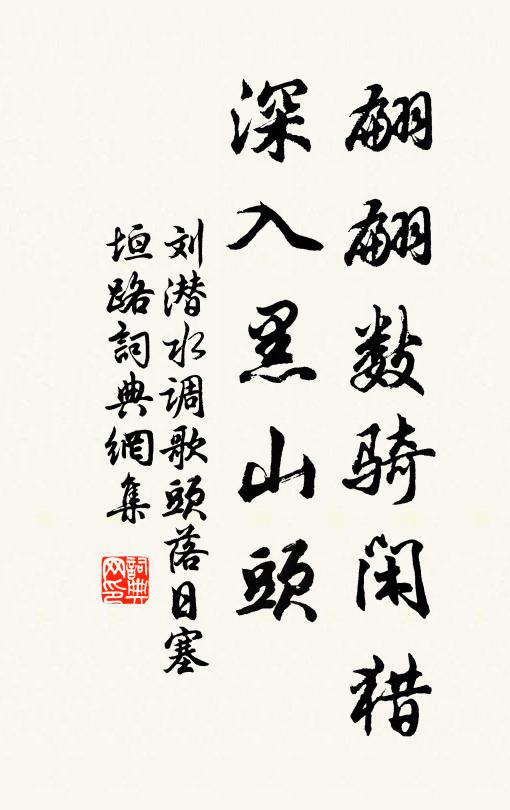 翩翩数骑闲猎
深入黑山頭
刘潜水调歌頭落日塞
垣路詞典網集
詞典网印